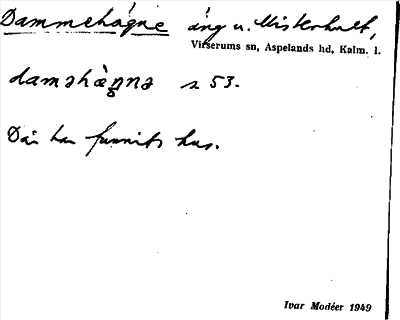 Dammehägne äng u. Misterhult,
Virserums sn, Aspelands hd, Kalm. l.
daməhàŋnə s 53.
Där har funnits hus.
Ivar Modéer 1949